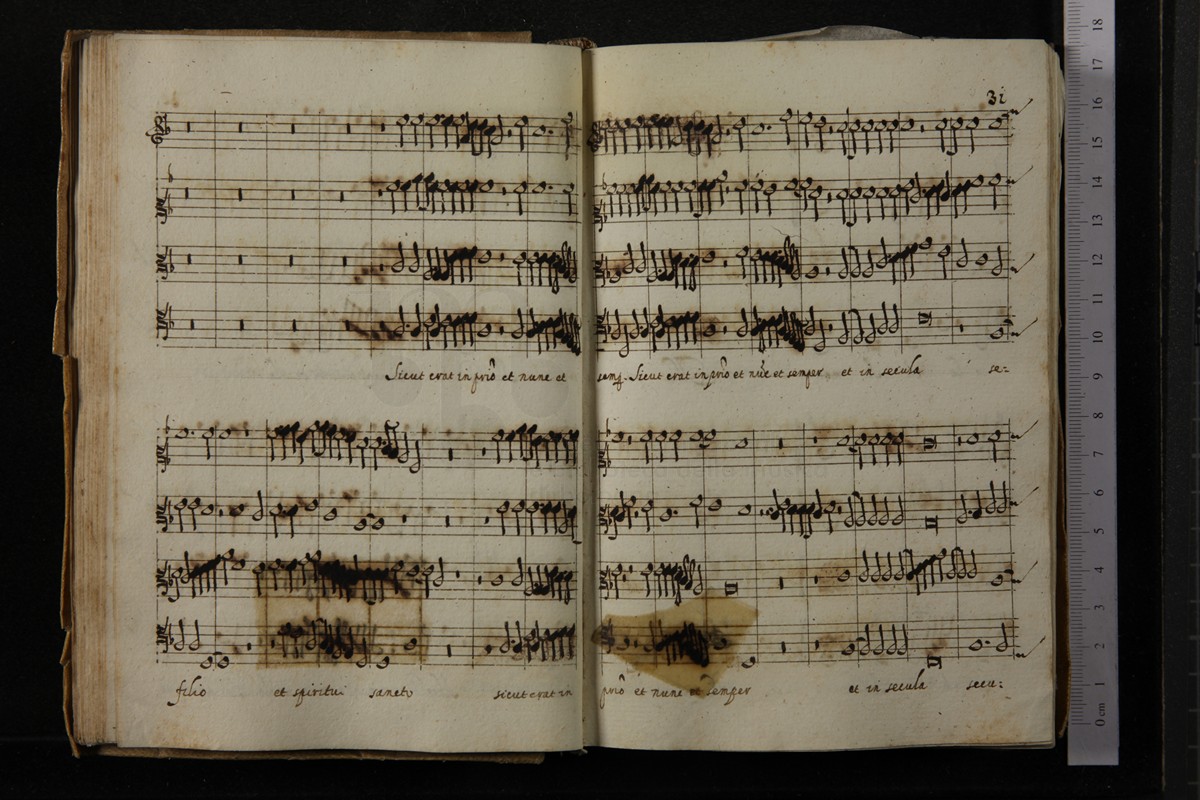 31
Sicut erat in priō et nunc et
semp. Sicut erat in priō et nūc et semper et in secula se:
filio et spiritui sancto sicut erat in
priō et nunc et semper et in secula secu:
18
17
16
15
14
13
12
11
10
9
8
7
6
5
4
3
2
1
0 cm